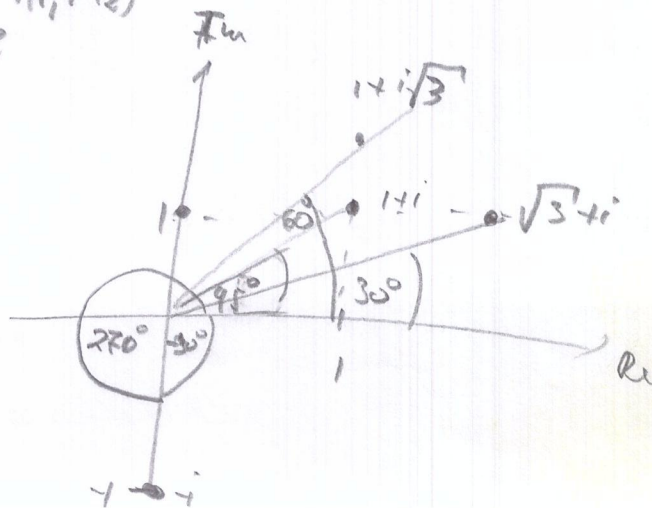 Im
1+i√3
1
60°
1+i
√3+i
45°
30°
270°
-90°
1
Re
-1
-i